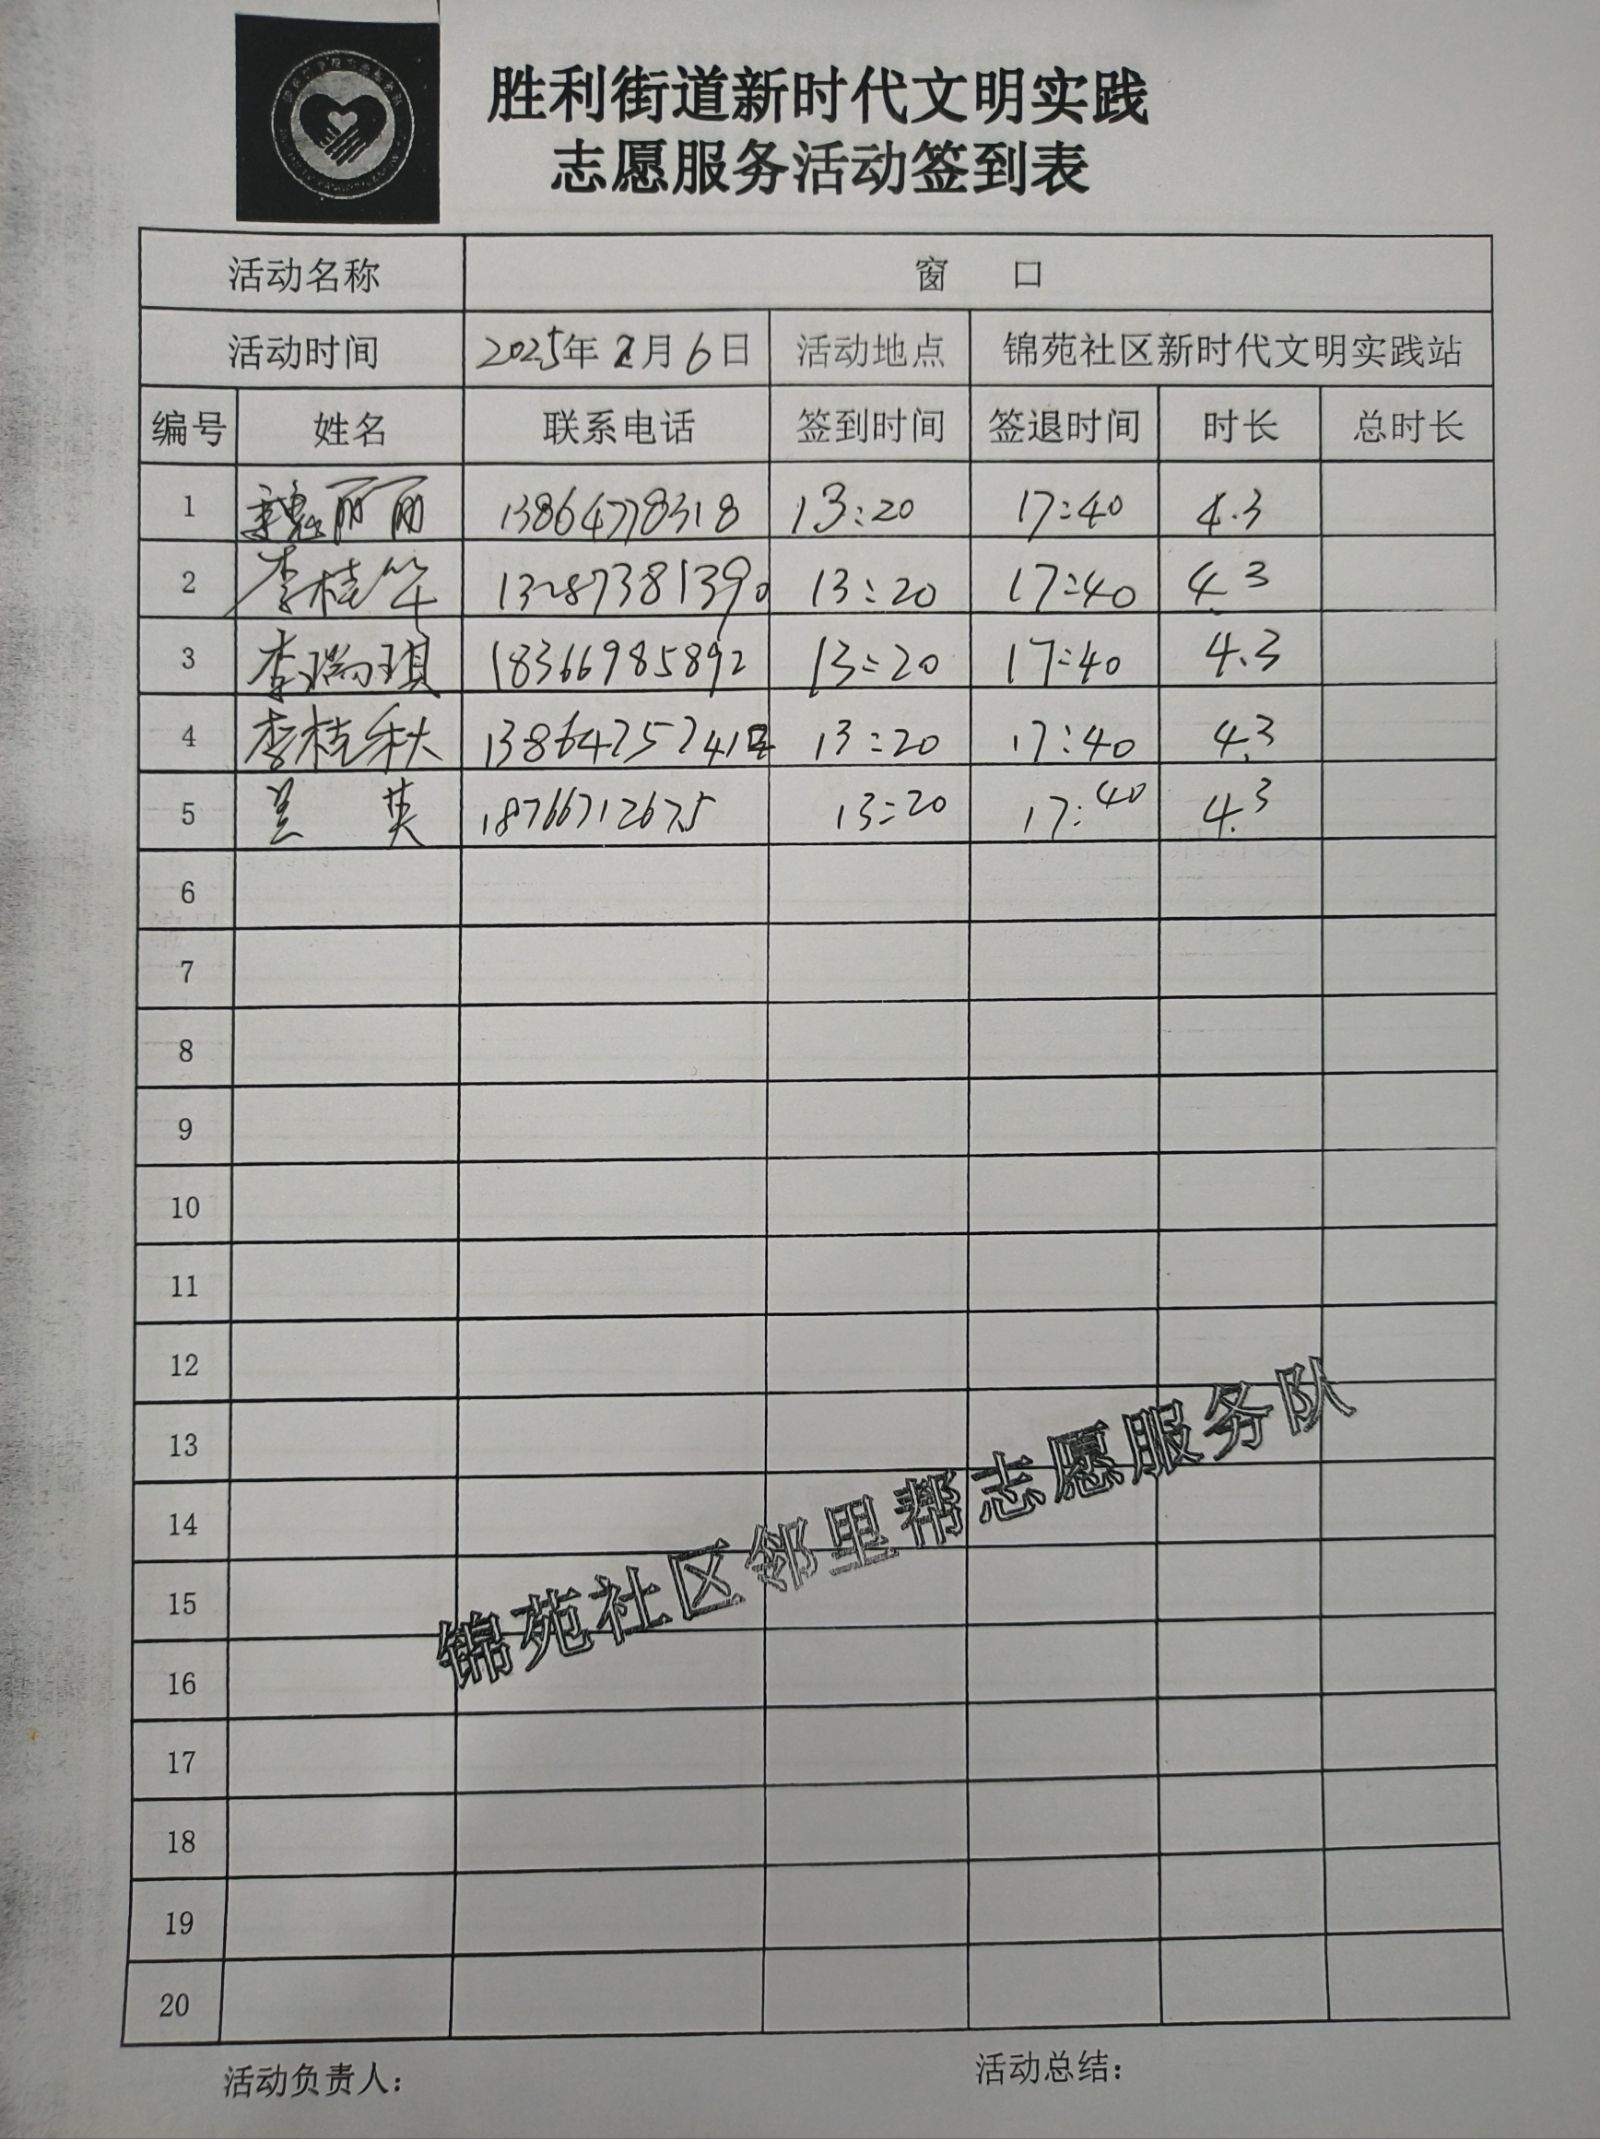 胜利街道新时代文明实践
志愿服务活动签到表
活动名称 窗 口
活动时间 2025年2月6日 活动地点 锦苑社区新时代文明实践站
编号 姓名 联系电话 签到时间 签退时间 时长 总时长
1 魏丽丽 13864778318 13:20 17:40 4.3
2 李桂华 13287381390 13:20 17:40 4.3
3 李瑞琪 18366985892 13:20 17:40 4.3
4 李桂秋 13:20 17:40 4.3
5 兰英 18766712675 13:20 17:40 4.3
6
7
8
9
10
11
12
13
14
15
16
17
18
19
20
锦苑社区邻里帮志愿服务队
活动负责人： 活动总结：